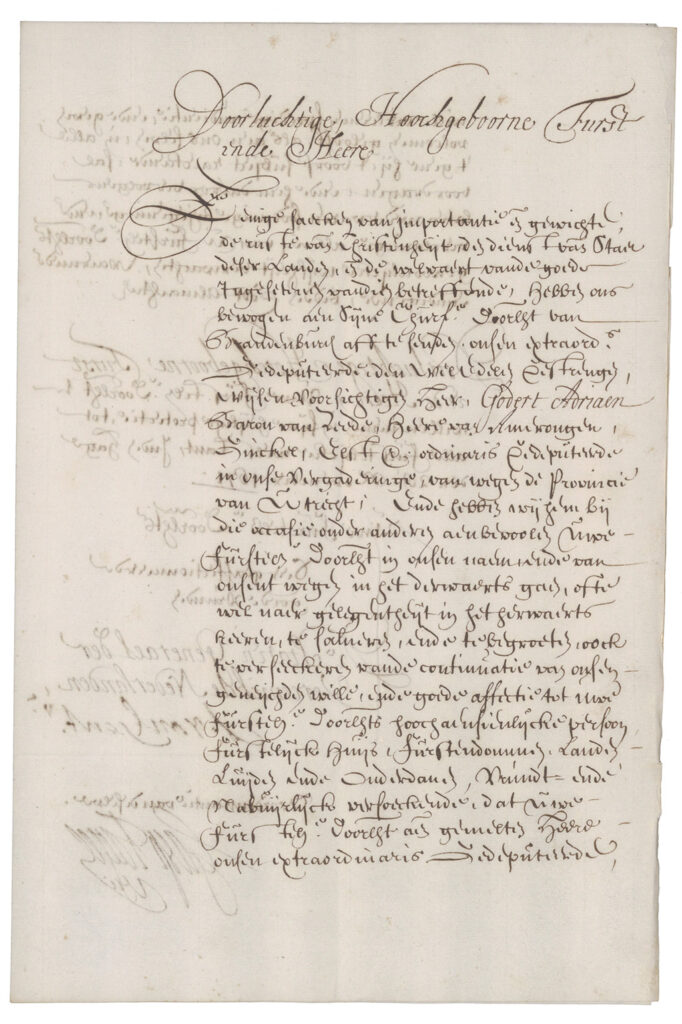 Doorluchtige, Hoochgeboorne Furst
ende Heere
Eenige saecken van importantie en gewichte,
de ruste van Christenheyt, den dienst van Staet
deser Landen, en de welvaert vande goede
Ingesetenen vandien betreffende, hebben ons
bewogen aen Syne Churf.e Doorlht van
Brandenburch aff te senden, onsen extraord.s
Gedeputeerde, den Wel Edelen Gestrengen,
Wijsen Voorsichtigen Heer, Godert Adriaen
Baron van Reede, Heere van Amerongen,
Ginckel, Elst &c ordinaris Gedeputeerde
in onse Vergaderinge, van wegen de Provincie
van Utrecht; Ende hebben wij hem bij
die occasie onder anderen aenbevoolen Uwe
Fursteln Doorlht in onsen naem, ende van
onsent wegen in het derwaerts gaen, ofte
wel naer gelegentheyt in het herwaerts
keeren, te salueren, ende te begroeten, oock
te verseeckeren vande continuatie van onsen
geneichden wille, ende goede affectie tot uwe
Fursteln.e Doorlhts hoochaensienlycke persoon,
Furstelyck Huijs, Furstendommen, Landen
Luijden ende Onderdanen, Vrundt- ende
Nabuirlyck versoeckende, dat Uwe
Fursteln.e Doorlht aen gemelten Heere
onsen extraordinaris Gedeputeerde,